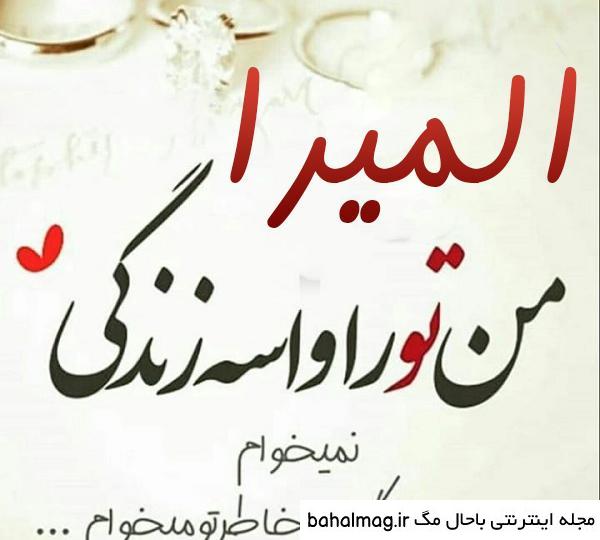 المیرا
من تو را واسه زندگی
نمیخوام
خاطر تو میخوام ...
مجله اینترنتی باحال مگ bahalmag.ir